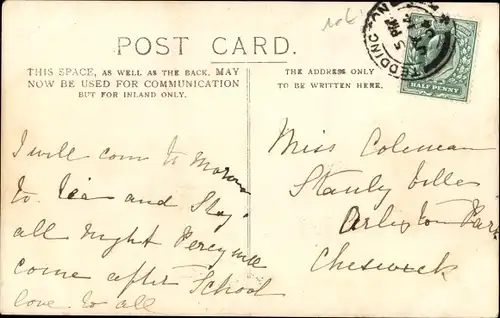 POST CARD.
THIS SPACE, AS WELL AS THE BACK, MAY
NOW BE USED FOR COMMUNICATION
BUT FOR INLAND ONLY.
THE ADDRESS ONLY
TO BE WRITTEN HERE.
TEDDINGTON
5 PM
HALF PENNY
I will com to Morow
to Tea and Stay
all night Percy will
come after School
love to all
Miss Coleman
Stanly Villa
Arlington Park
Cheswick